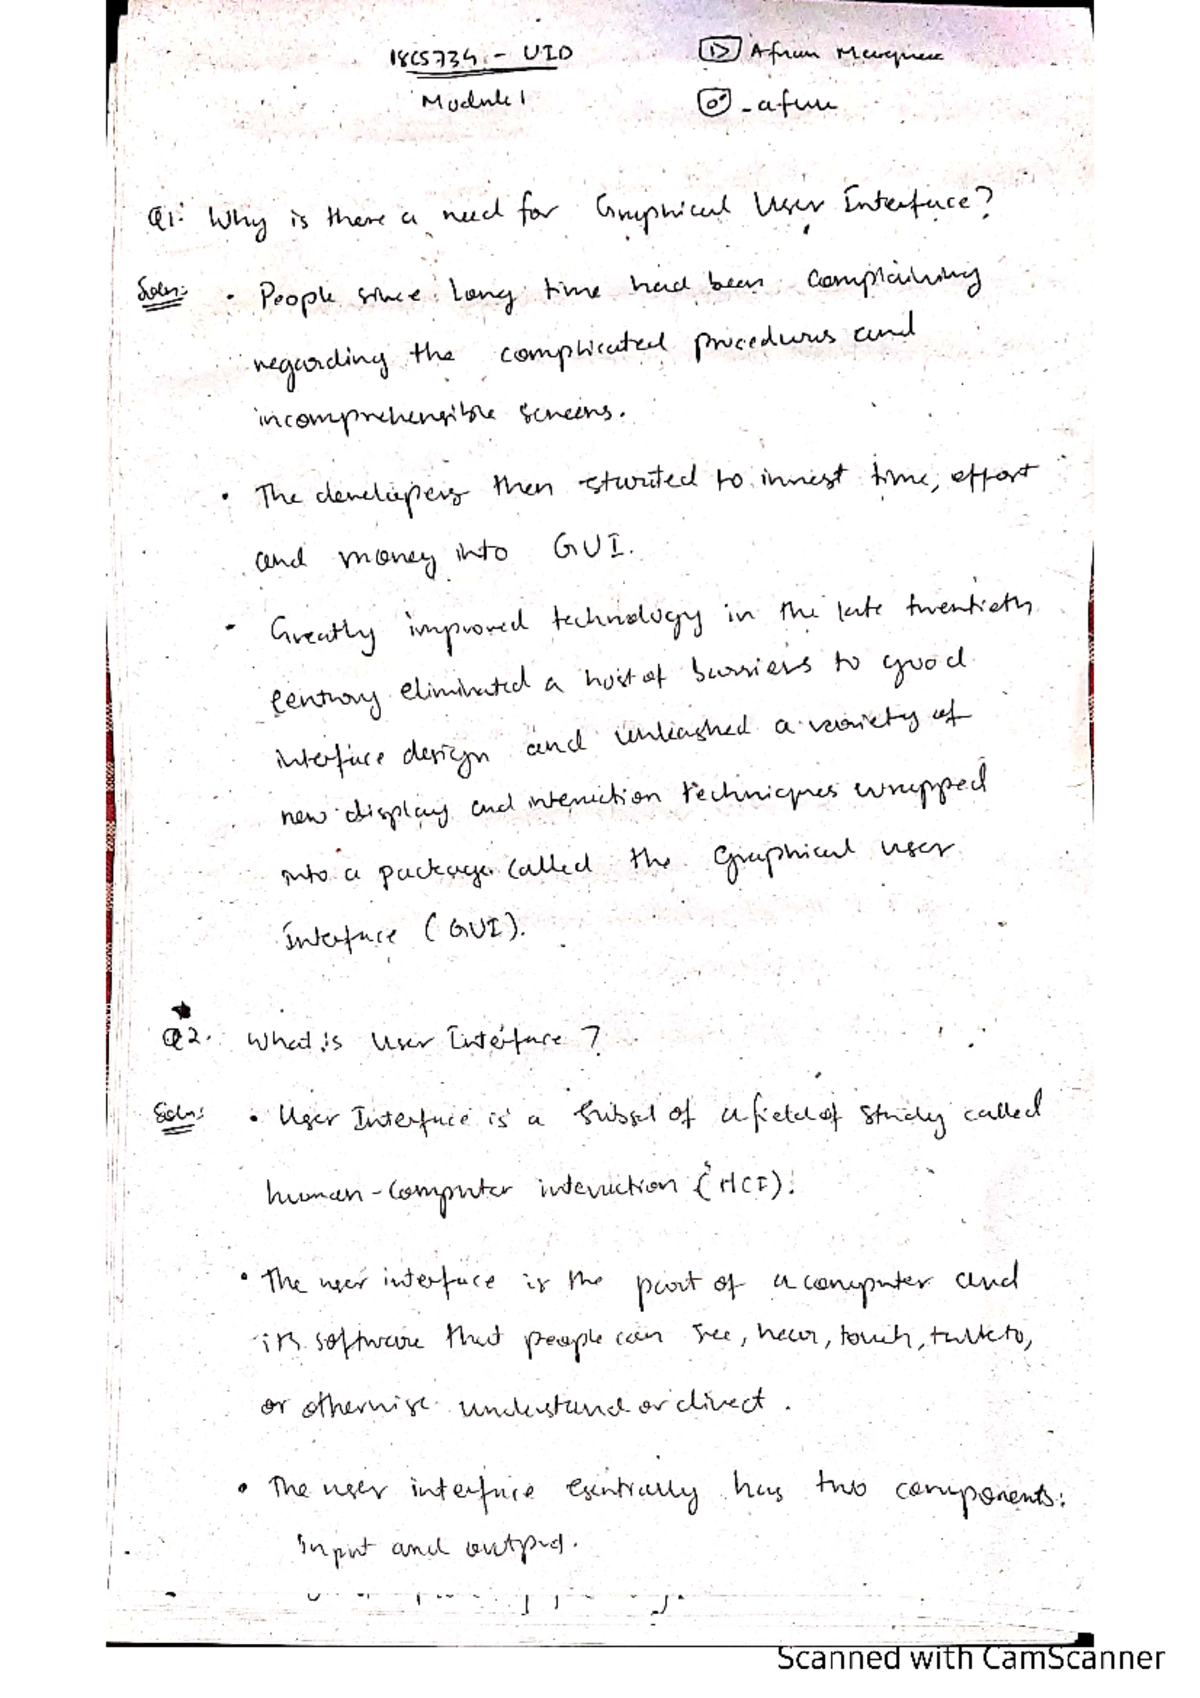 18CS734 - UID
Module 1
Afnan
Q1: Why is there a need for Graphical User Interface?
Soln:
• People since long time had been complaining
regarding the complicated procedures and
incomprehensible screens.
• The developers then started to invest time, effort
and money into GUI.
• Greatly improved technology in the late twentieth
century eliminated a host of barriers to good
interface design and unleashed a variety of
new display and interaction techniques wrapped
into a package called the graphical user
interface (GUI).
★
Q2. What is User Interface?
Soln:
• User Interface is a subset of a field of study called
human-computer interaction (HCI).
• The user interface is the part of a computer and
its software that people can see, hear, touch, talk to,
or otherwise understand or direct.
• The user interface esentrially has two components:
input and output.
Scanned with CamScanner